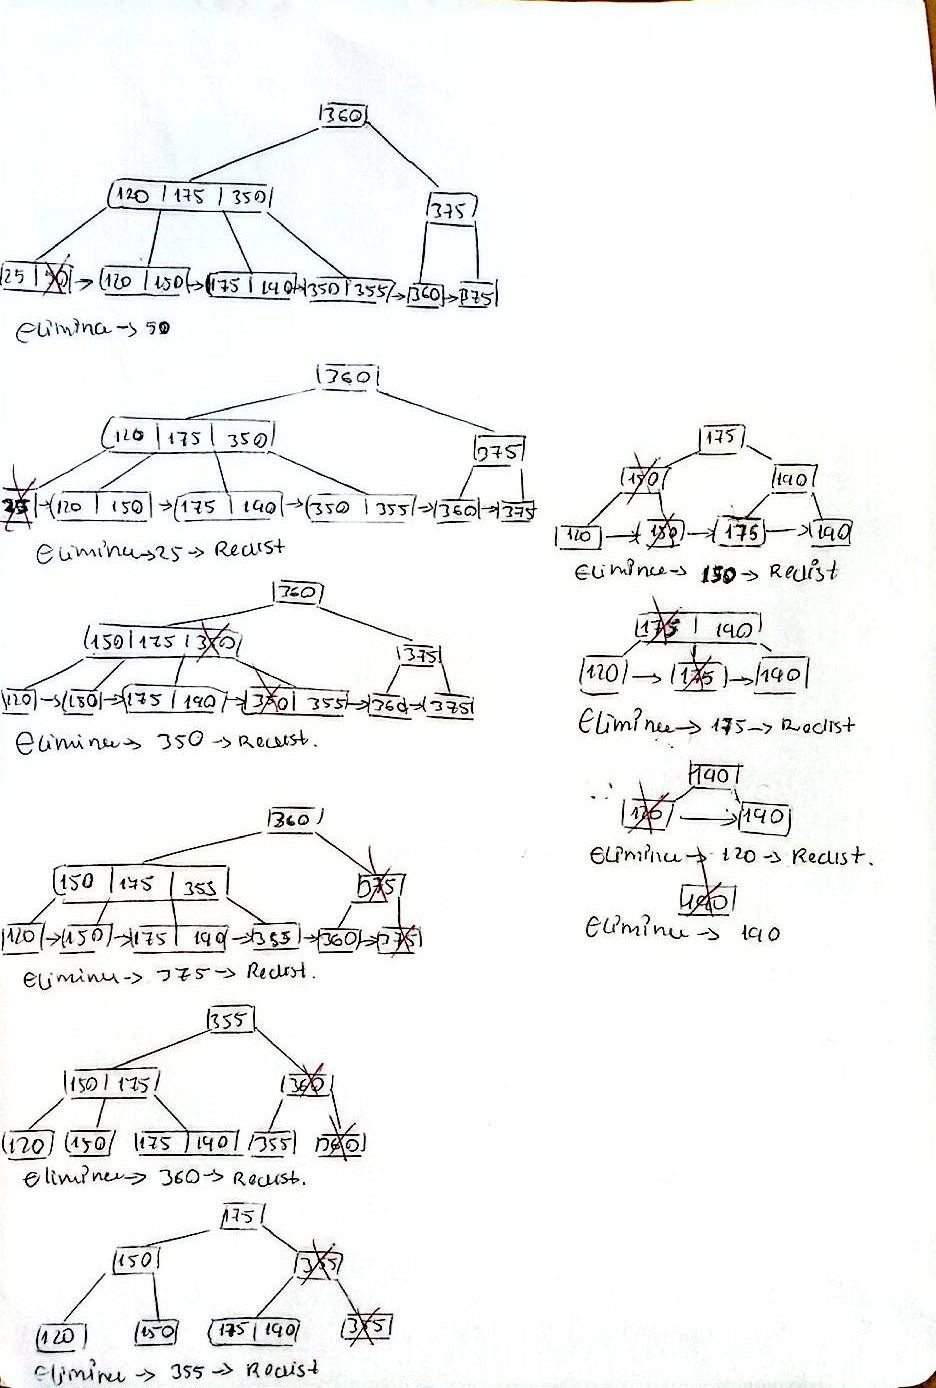 360
120 | 175 | 350
375
25 | 50 → 120 | 150 → 175 | 190 → 350 | 355 → 360 → 375
Elimina → 50
360
120 | 175 | 350
375
25 → 120 | 150 → 175 | 190 → 350 | 355 → 360 → 375
Elimina → 25 → Redist
360
150 | 175 | 350
375
120 → 150 → 175 | 190 → 350 | 355 → 360 → 375
Elimina → 350 → Redist.
360
150 | 175 | 355
375
120 → 150 → 175 | 190 → 355 → 360 → 375
Elimina → 375 → Redist.
355
150 | 175
360
120 150 175 | 190 355 360
Elimina → 360 → Redist.
175
150
355
120 150 175 | 190 355
Elimina → 355 → Redist
175
150
190
120 → 150 → 175 → 190
Elimina → 150 → Redist
175 | 190
120 → 175 → 190
Elimina → 175 → Redist
190
120 → 190
Elimina → 120 → Redist.
190
Elimina → 190